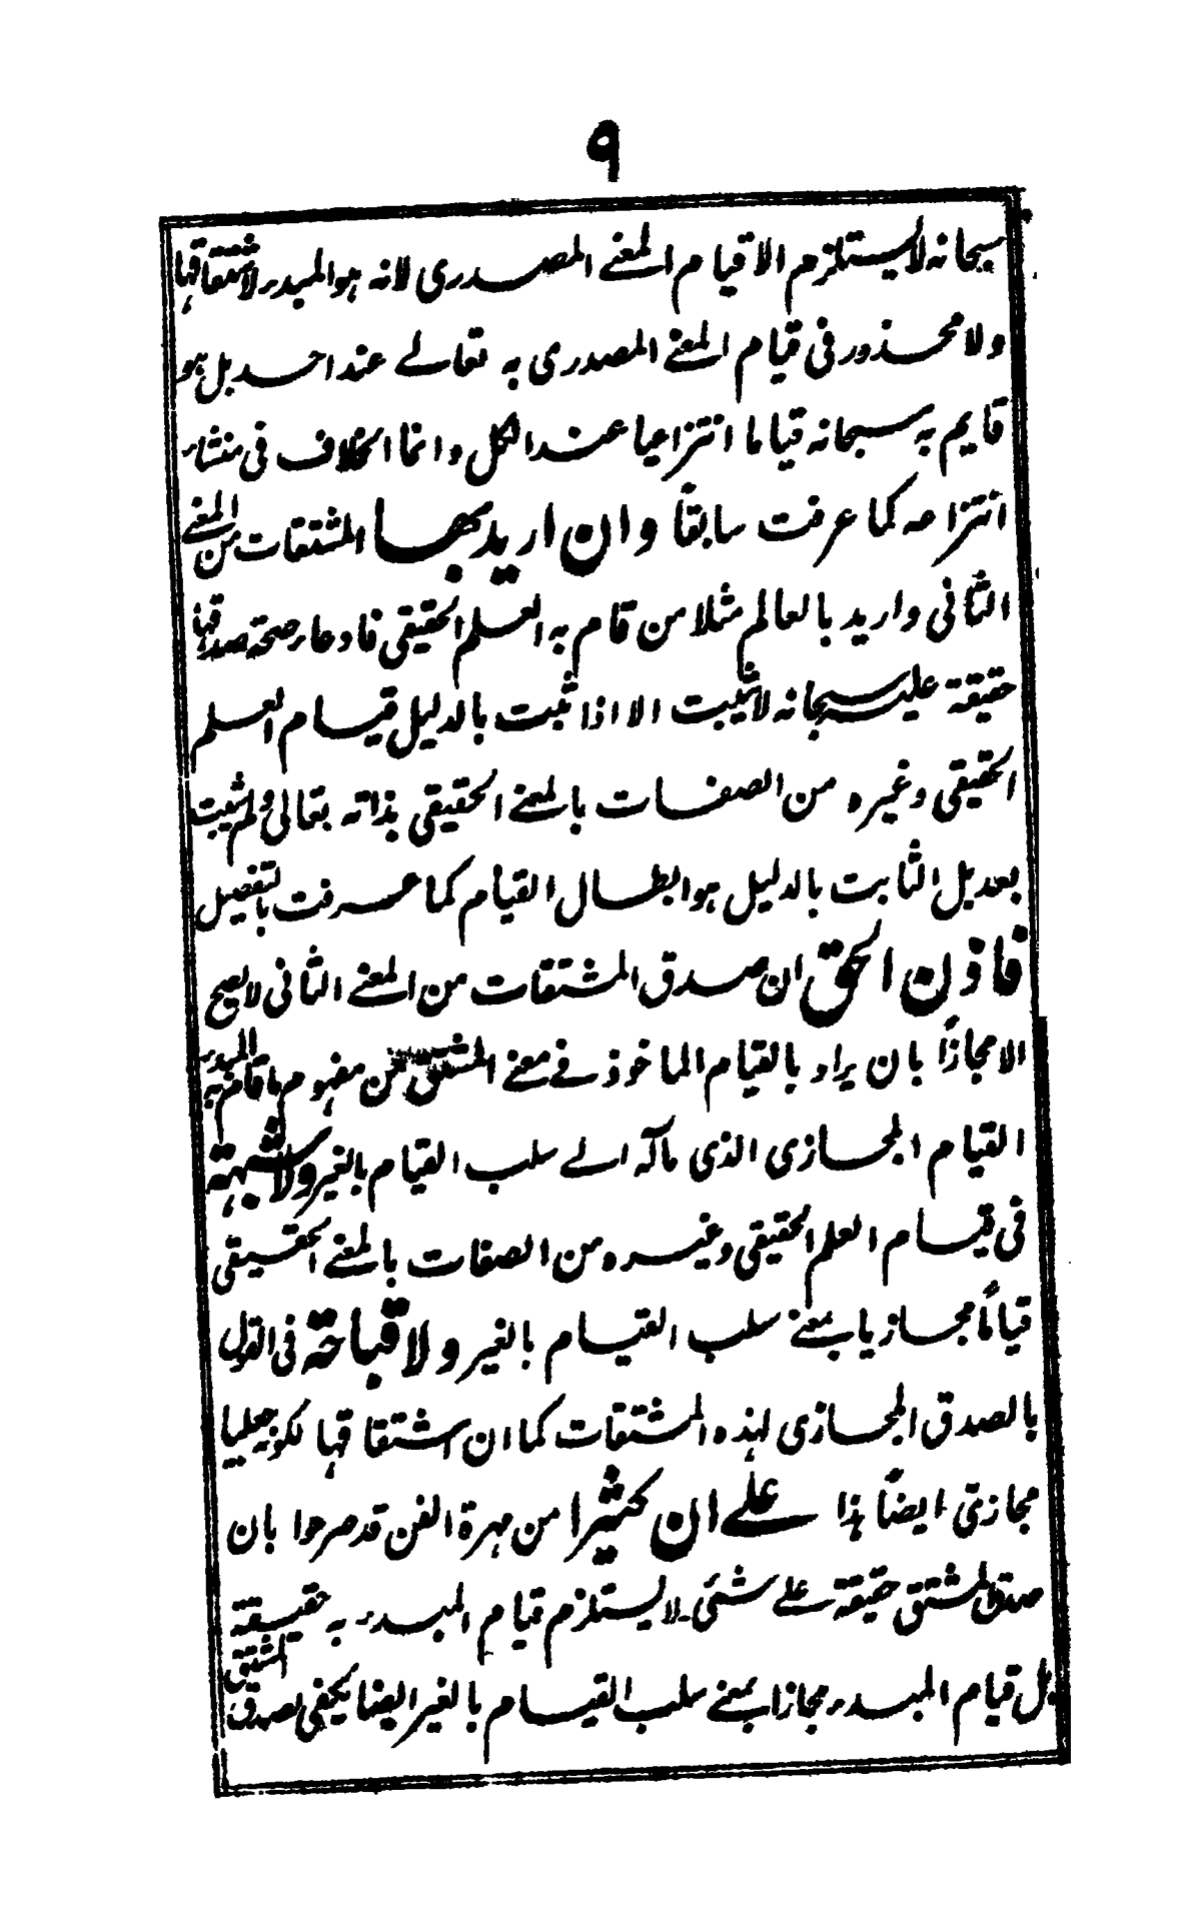 ٩
سبحانه لا يستلزم الا قيام المعنے المصدرى لانه هو المبدء لاشتقاقها
ولا محذور فى قيام المعنے المصدرى به تعالے عند احد بل هو
قايم به سبحانه قياما انتزاعيا عند الكل وانما الخلاف فى منشاء
انتزاعه كما عرفت سابقاً وان اريد بها المشتقات من المعنے
الثانى واريد بالعالم مثلا من قام به العلم الحقيقى فادعاء صحة صدقها
حقيقة عليه سبحانه لا يثبت الا اذا ثبت بالدليل قيام العلم
الحقيقى وغيره من الصفات بالمعنے الحقيقى بذاته تعالى ولم يثبت
بعد بل الثابت بالدليل هو ابطال القيام كما عرفت بالتفصيل
فاذن الحق ان صدق المشتقات من المعنے الثانى لا يصح
الا مجازاً بان يراد بالقيام الماخوذ فے معنے المشتق من مفهوم ما قام به المبدء
القيام المجازى الذى مآله الے سلب القيام بالغير ولا شبهة
فى قيام العلم الحقيقى وغيره من الصفات بالمعنے الحقيقى
قياماً مجازيا بمعنے سلب القيام بالغير ولا قباحة فى القول
بالصدق المجازى لهذه المشتقات كما ان اشتقاقها لكونه جعليا
مجازىّ ايضاً هذا علے ان كثيرا من مهرة الفن قد صرحوا بان
صدق المشتق حقيقة علے شئى لا يستلزم قيام المبدء به حقيقة
بل قيام المبدء مجازا بمعنے سلب القيام بالغير ايضا يكفى لصدق المشتق